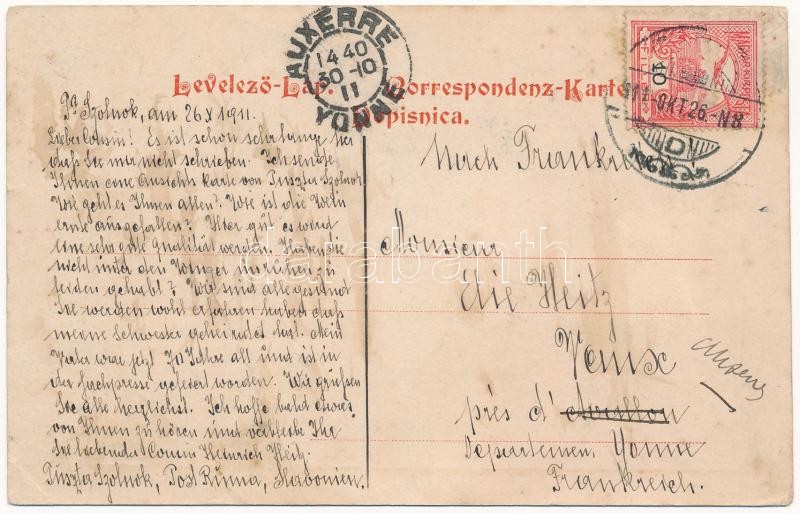 Levelező-Lap. Correspondenz-Karte
Dopisnica.
AUXERRE
1440
30-10
11
YONNE
10
911-OKT.26.-N8
D
Pa Szolnok, am 26 X 1911.
Lieber Cousin! Es ist schon sehr lange her
dass Sie mir nicht schrieben. Ich sende
Ihnen eine Ansichts karte von Puszta Szolnok
Wie geht es Ihnen allen? Wie ist die Wein
ernte ausgefallen? Hier gut, es wird
eine sehr gute Qualität werden. Haben Sie
nicht unter den Winzer unruhen zu
leiden gehabt? Wir sind alle gesund
Sie werden wohl erfahren haben dass
meine Schwester geheiratet hat. Mein
Vater war jetzt 70 Jahre alt und ist in
der Fachpresse gefeiert worden. Wir grüssen
Sie alle herzlichst. Ich hoffe bald etwas
von Ihnen zu hören und verbleibe Ihr
Sie liebender Cousin Heinrich Weitz.
Puszta Szolnok, Post Ruma, Slavonien.
Nach Frankreich
Monsieur
Elie Weitz
Vaux
près d' Avallon
Auxerre
Departement Yonne
Frankreich.
darabanth